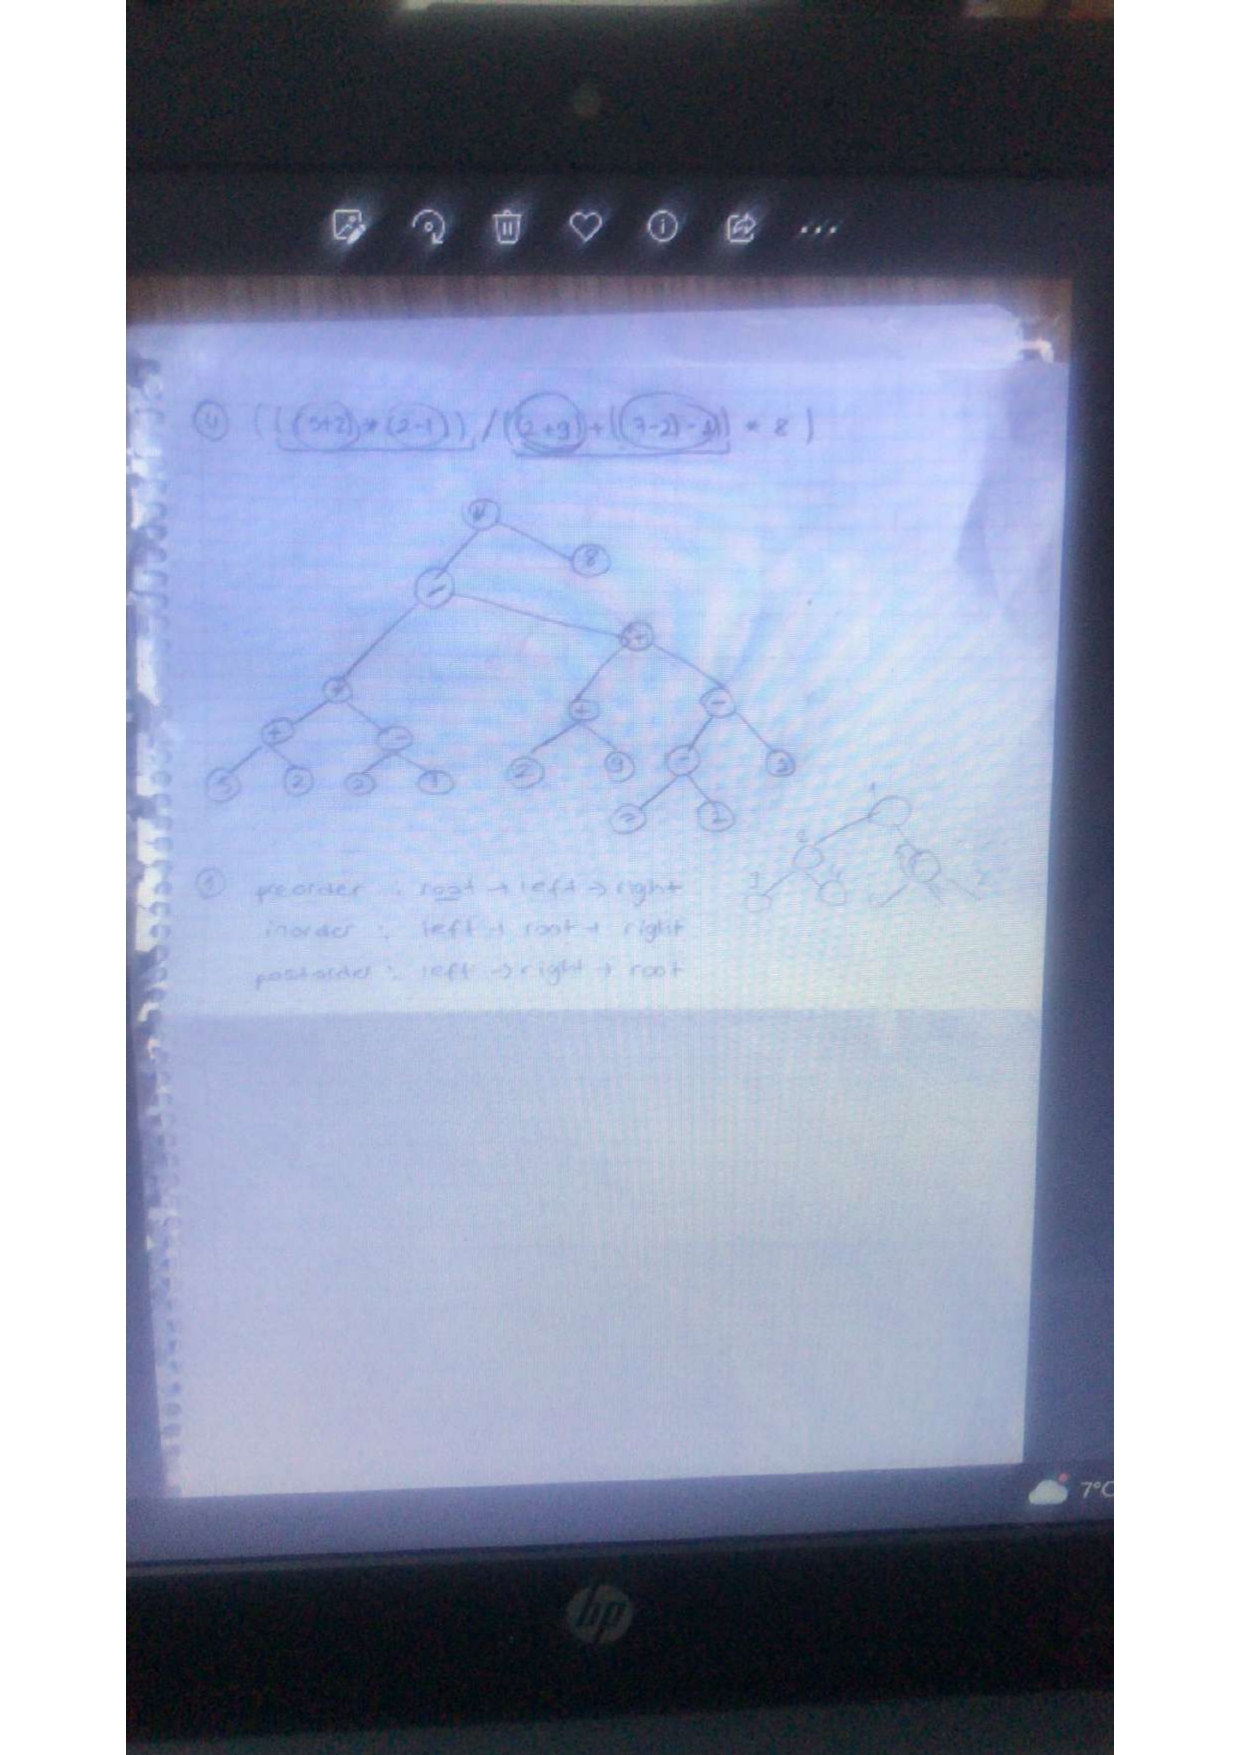 ④ (((5+2)*(2-1))/((2+9)+((7-2)-1)) * 8)
*
8
/
+
*
+
-
+
-
5
2
2
1
2
9
-
7
2
preorder : root → left → right
inorder : left → root → right
postorder : left → right → root
7°C
hp